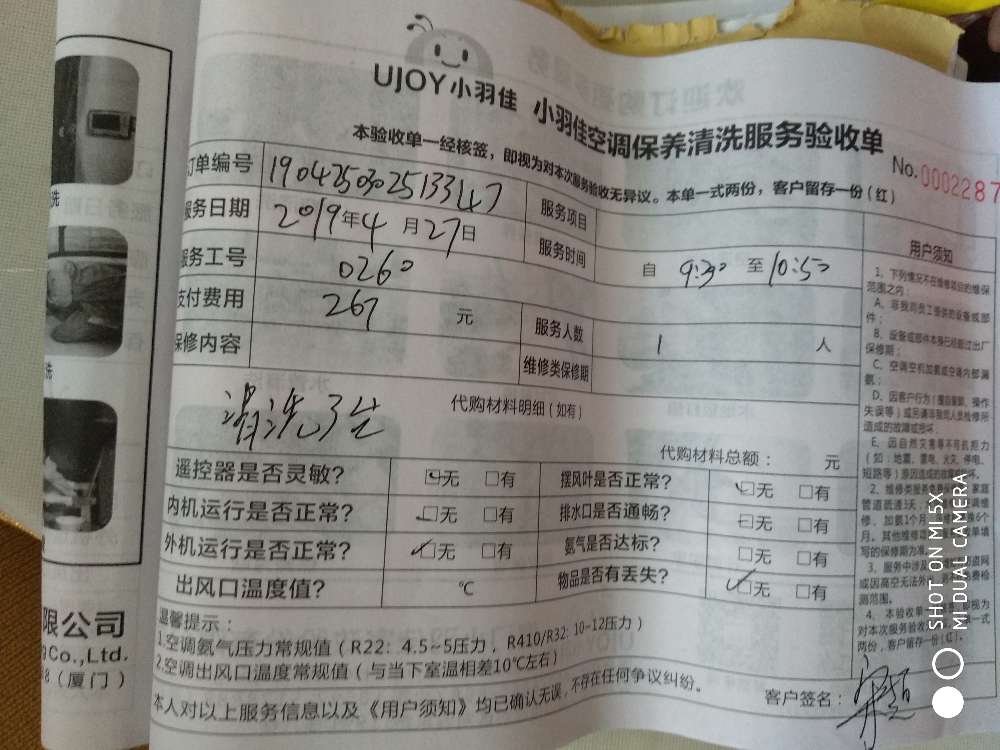 UJOY小羽佳 小羽佳空调保养清洗服务验收单
本验收单一经核签，即视为对本次服务验收无异议。本单一式两份，客户留存一份（红）
No.0002287
订单编号 19042503025133147 服务项目
服务日期 2019年4月27日 服务时间 自 9:30 至 10:50
服务工号 0260
支付费用 267 元 服务人数 1 人
保修内容 维修类保修期
清洗 代购材料明细（如有）
代购材料总额： 元
遥控器是否灵敏? 无 □有 摆风叶是否正常? 无 □有
内机运行是否正常? 无 □有 排水口是否通畅? 无 □有
外机运行是否正常? 无 □有 氨气是否达标? □无 □有
出风口温度值? ℃ 物品是否有丢失? 无 □有
温馨提示：
1.空调氨气压力常规值（R22：4.5~5压力，R410/R32: 10-12压力）
2.空调出风口温度常规值（与当下室温相差10℃左右）
本人对以上服务信息以及《用户须知》均已确认无误，不存在任何争议纠纷。
客户签名：
用户须知
1、下列情况不在维修项目的维保
范围之内：
A、非我司员工提供的设备或部
件；
B、设备或部件本身已经超过出厂
保修期；
C、空调空机加氨或空调内部漏
氨；
D、因客户行为（擅自聚装、操作
失误等）或另请非我司人员检修所
造成的故障或损坏；
E、因自然灾害等不可抗拒力
（如：地震、雷电、火灾、停电、
短路等）原因造成的故障或损坏。
2、维修类服务免费
管道疏通3天，
修、加氨1个月
月。其他维修
写的保修期为准
3、服务中涉及
或因高空无法外
测范围。
4、本验收单
对本次服务验收
两份，客户留存一份(红)。
洗
洗
限公司
Co.,Ltd.
8（厦门）
SHOT ON MI 5X
MI DUAL CAMERA